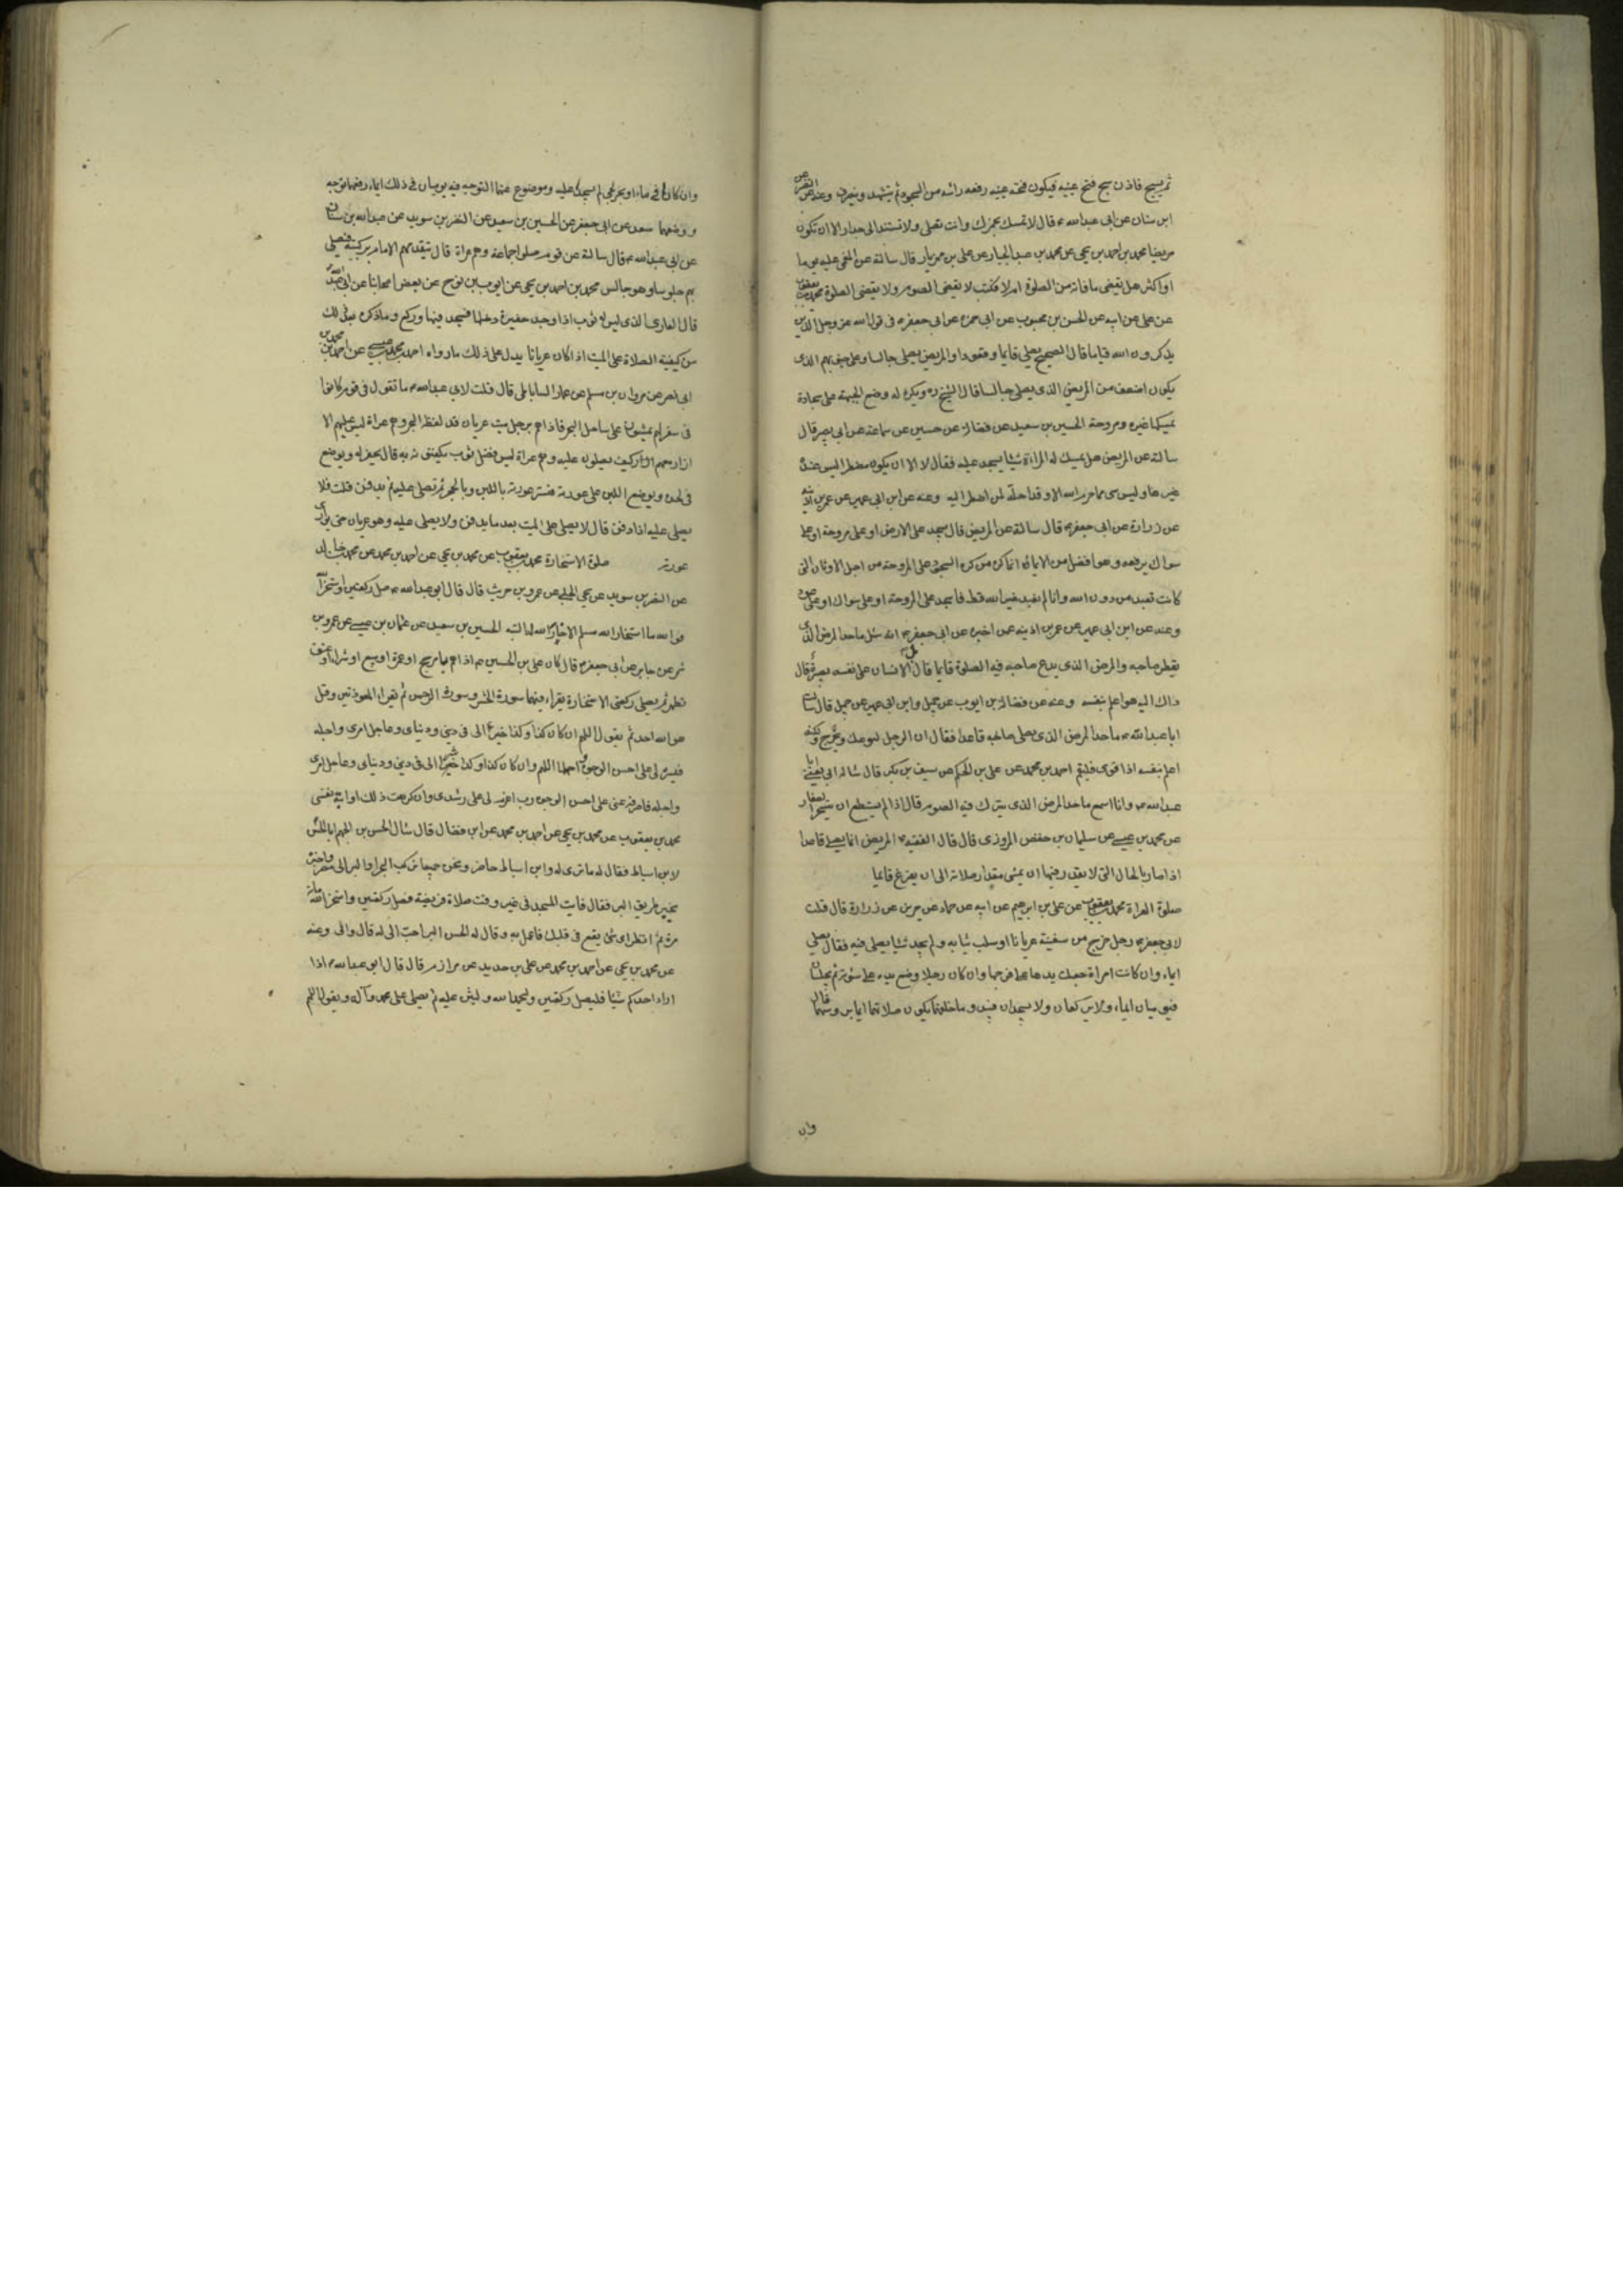 ثم يسبح فاذن سبح فتح عينيه فيكون فتحه عينيه رفعه راسه من السجود ثم يتشهد وينصرف وعنه عن النضر عن
ابن سنان عن ابى عبدالله ع قال لا تمسك بخمرك وانت تصلى ولا تستند الى جدار الا ان تكون
مريضا محمد بن احمد بن يحيى عن محمد بن عبد الجبار عن على بن مهزيار قال سالته عن المغمى عليه يوما
او اكثر هل يقضى ما فاته من الصلوة ام لا فكتب لا يقضى الصوم ولا يقضى الصلوة محمد بن يعقوب
عن على عن ابيه عن الحسن بن محبوب عن ابى حمزه عن ابى جعفر ع فى قول الله عز وجل الذين
يذكرون الله قياما قال الصحيح يصلى قايما وقعودا والمريض يصلى جالسا وعلى جنوبهم الذى
يكون اضعف من المريض الذى يصلى جالسا قال الشيخ ره ويكره له وضع الجبهة على سجادة
يمسكها غيره ومروحة الحسين بن سعيد عن فضاله عن حسين عن سماعة عن ابى بصير قال
سالته عن المريض هل تمسك له المراة شيئا يسجد عليه فقال لا الا ان يكون مضطرا ليس عنده
غيرها وليس شى مما حرم الله الا وقد احله لمن اضطر اليه وعنه عن ابن ابى عمير عن عمر بن اذينه
عن زرارة عن ابى جعفر ع قال سالته عن المريض قال يسجد على الارض او على مروحة او على
سواك يرفعه وهو افضل من الايماء انما كره من كره السجود على المروحة من اجل الاوثان التى
كانت تعبد من دون الله وانا لم نعبد غير الله قط فاسجد على المروحة او على سواك او على عود
وعنه عن ابن ابى عمير عن عمر بن اذينه عمن اخبره عن ابى جعفر ع انه سئل ما حد المرض الذى
يفطر صاحبه والمرض الذى يدع صاحبه فيه الصلوة قايما قال بل الانسان على نفسه بصيرة قال
ذاك اليه هو اعلم بنفسه وعنه عن فضالة بن ايوب عن جميل وابن ابى عمير عن جميل قال سالت
ابا عبدالله ع ما حد المرض الذى يصلى صاحبه قاعدا فقال ان الرجل ليوعك ويحرج ولكنه
اعلم بنفسه اذا قوى فليقم احمد بن محمد عن على بن الحكم عن سيف عن بكر قال ساله ابى يعنى ابا
عبدالله ع وانا اسمع ما حد المرض الذى يترك فيه الصوم قال اذا لم يستطع ان يتسحر الصفار
عن محمد بن عيسى عن سليمان بن حفص المروزى قال قال الفقيه ع المريض انما يصلى قاعدا
اذا صار بالحال التى لا يقدر فيها ان يمشى مقدار صلاته الى ان يفرغ قايما
صلوة العراة محمد بن يعقوب عن على بن ابرهيم عن ابيه عن حماد عن حريز عن زرارة قال قلت
لابى جعفر ع رجل خرج من سفينة عريانا او سلب ثيابه ولم يجد شيئا يصلى فيه فقال يصلى
ايماء وان كانت امراة جعلت يدها على فرجها وان كان رجلا وضع يده على سوئته ثم يجلسان
فيوميان ايماء ولا يركعان ولا يسجدان فيبدو ما خلفهما تكون صلاتهما ايماء بروسهما قال
وان
وان كانا فى ماء او بحر لجى لم يسجدا عليه وموضوع عنهما التوجه فيه يوميان فى ذلك ايماء رفعهما توجه
ووضعهما سعد عن ابى جعفر عن الحسين بن سعيد عن النضر بن سويد عن عبدالله بن سنان
عن ابى عبدالله ع قال سالته عن قوم صلوا جماعة وهم عراة قال يتقدمهم الامام بركبتيه فيصلى
بهم جلوسا وهو جالس محمد بن احمد بن يحيى عن ايوب بن نوح عن بعض اصحابنا عن ابى عبد الله ع
قال العارى الذى ليس له ثوب اذا وجد حفيرة دخلها فسجد فيها وركع وما ذكره بعد ذلك
من كيفية الصلاة على الميت اذا كان عريانا يدل على ذلك ما رواه احمد بن محمد بن عيسى عن احمد بن محمد بن
ابى نصر عن مروان بن مسلم عن عمار الساباطى قال قلت لابى عبدالله ع ما تقول فى قوم كانوا
فى سفر لهم يمشون على ساحل البحر فاذا هم برجل ميت عريان قد لفظه البحر وهم عراة ليس عليهم الا
ازار هم الازار كيف يصلون عليه وهم عراة ليس فضل ثوب يكفنونه به قال يحفر له ويوضع
فى لحده ويوضع اللبن على عورته فتستر عورته باللبن وبالحجر ثم تصلى عليه ثم يدفن قلت فلا
يصلى عليه اذا دفن قال لا يصلى على الميت بعد ما يدفن ولا يصلى عليه وهو عريان حتى يوارى
عورته صلوة الاستخارة محمد بن يعقوب عن محمد بن يحيى عن احمد بن محمد عن محمد بن خالد
عن النضر بن سويد عن يحيى الحلبى عن عمرو بن حريث قال قال ابو عبدالله ع صل ركعتين واستخر الله
فو الله ما استخار الله مسلم الا خار الله له البتة الحسين بن سعيد عن عثمان بن عيسى عن عمرو بن
شمر عن جابر عن ابى جعفر ع قال كان على بن الحسين ع اذا هم بامر حج او عمرة او بيع او شراء او عتق
تطهر ثم يصلى ركعتى الاستخارة يقراء فيهما سورة الحشر وسورة الرحمن ثم يقراء المعوذتين وقل
هو الله احد ثم يقول اللهم ان كان كذا وكذا خيرا لى فى دينى ودنياى وعاجل امرى واجله
فيسره لى على احسن الوجوه واجملها اللهم وان كان كذا وكذا شرا لى فى دينى ودنياى وعاجل امرى
واجله فاصرفه عنى على احسن الوجوه رب اعزم لى على رشدى وان كرهت ذلك او ابته نفسى
محمد بن يعقوب عن محمد بن يحيى عن احمد بن محمد عن ابن فضال قال سال الحسن بن الجهم ابا الحسن
لابن اسباط فقال له ما ترى له وابن اسباط حاضر ونحن جميعا نركب البحر او البر الى مصر واخبره
بخير طريق البر فقال فايت المسجد فى غير وقت صلاة فريضة فصل ركعتين واستخر الله مائة
مرة ثم انظر اى شئ يقع فى قلبك فاعمل به وقال له الحسن البر احب الى له قال والى وعنه
عن محمد بن يحيى عن احمد بن محمد عن على بن حديد عن مرازم قال قال ابو عبدالله ع اذا
اراد احدكم شيئا فليصل ركعتين وليحمد الله وليثن عليه ثم يصلى على محمد وآله ويقول اللهم